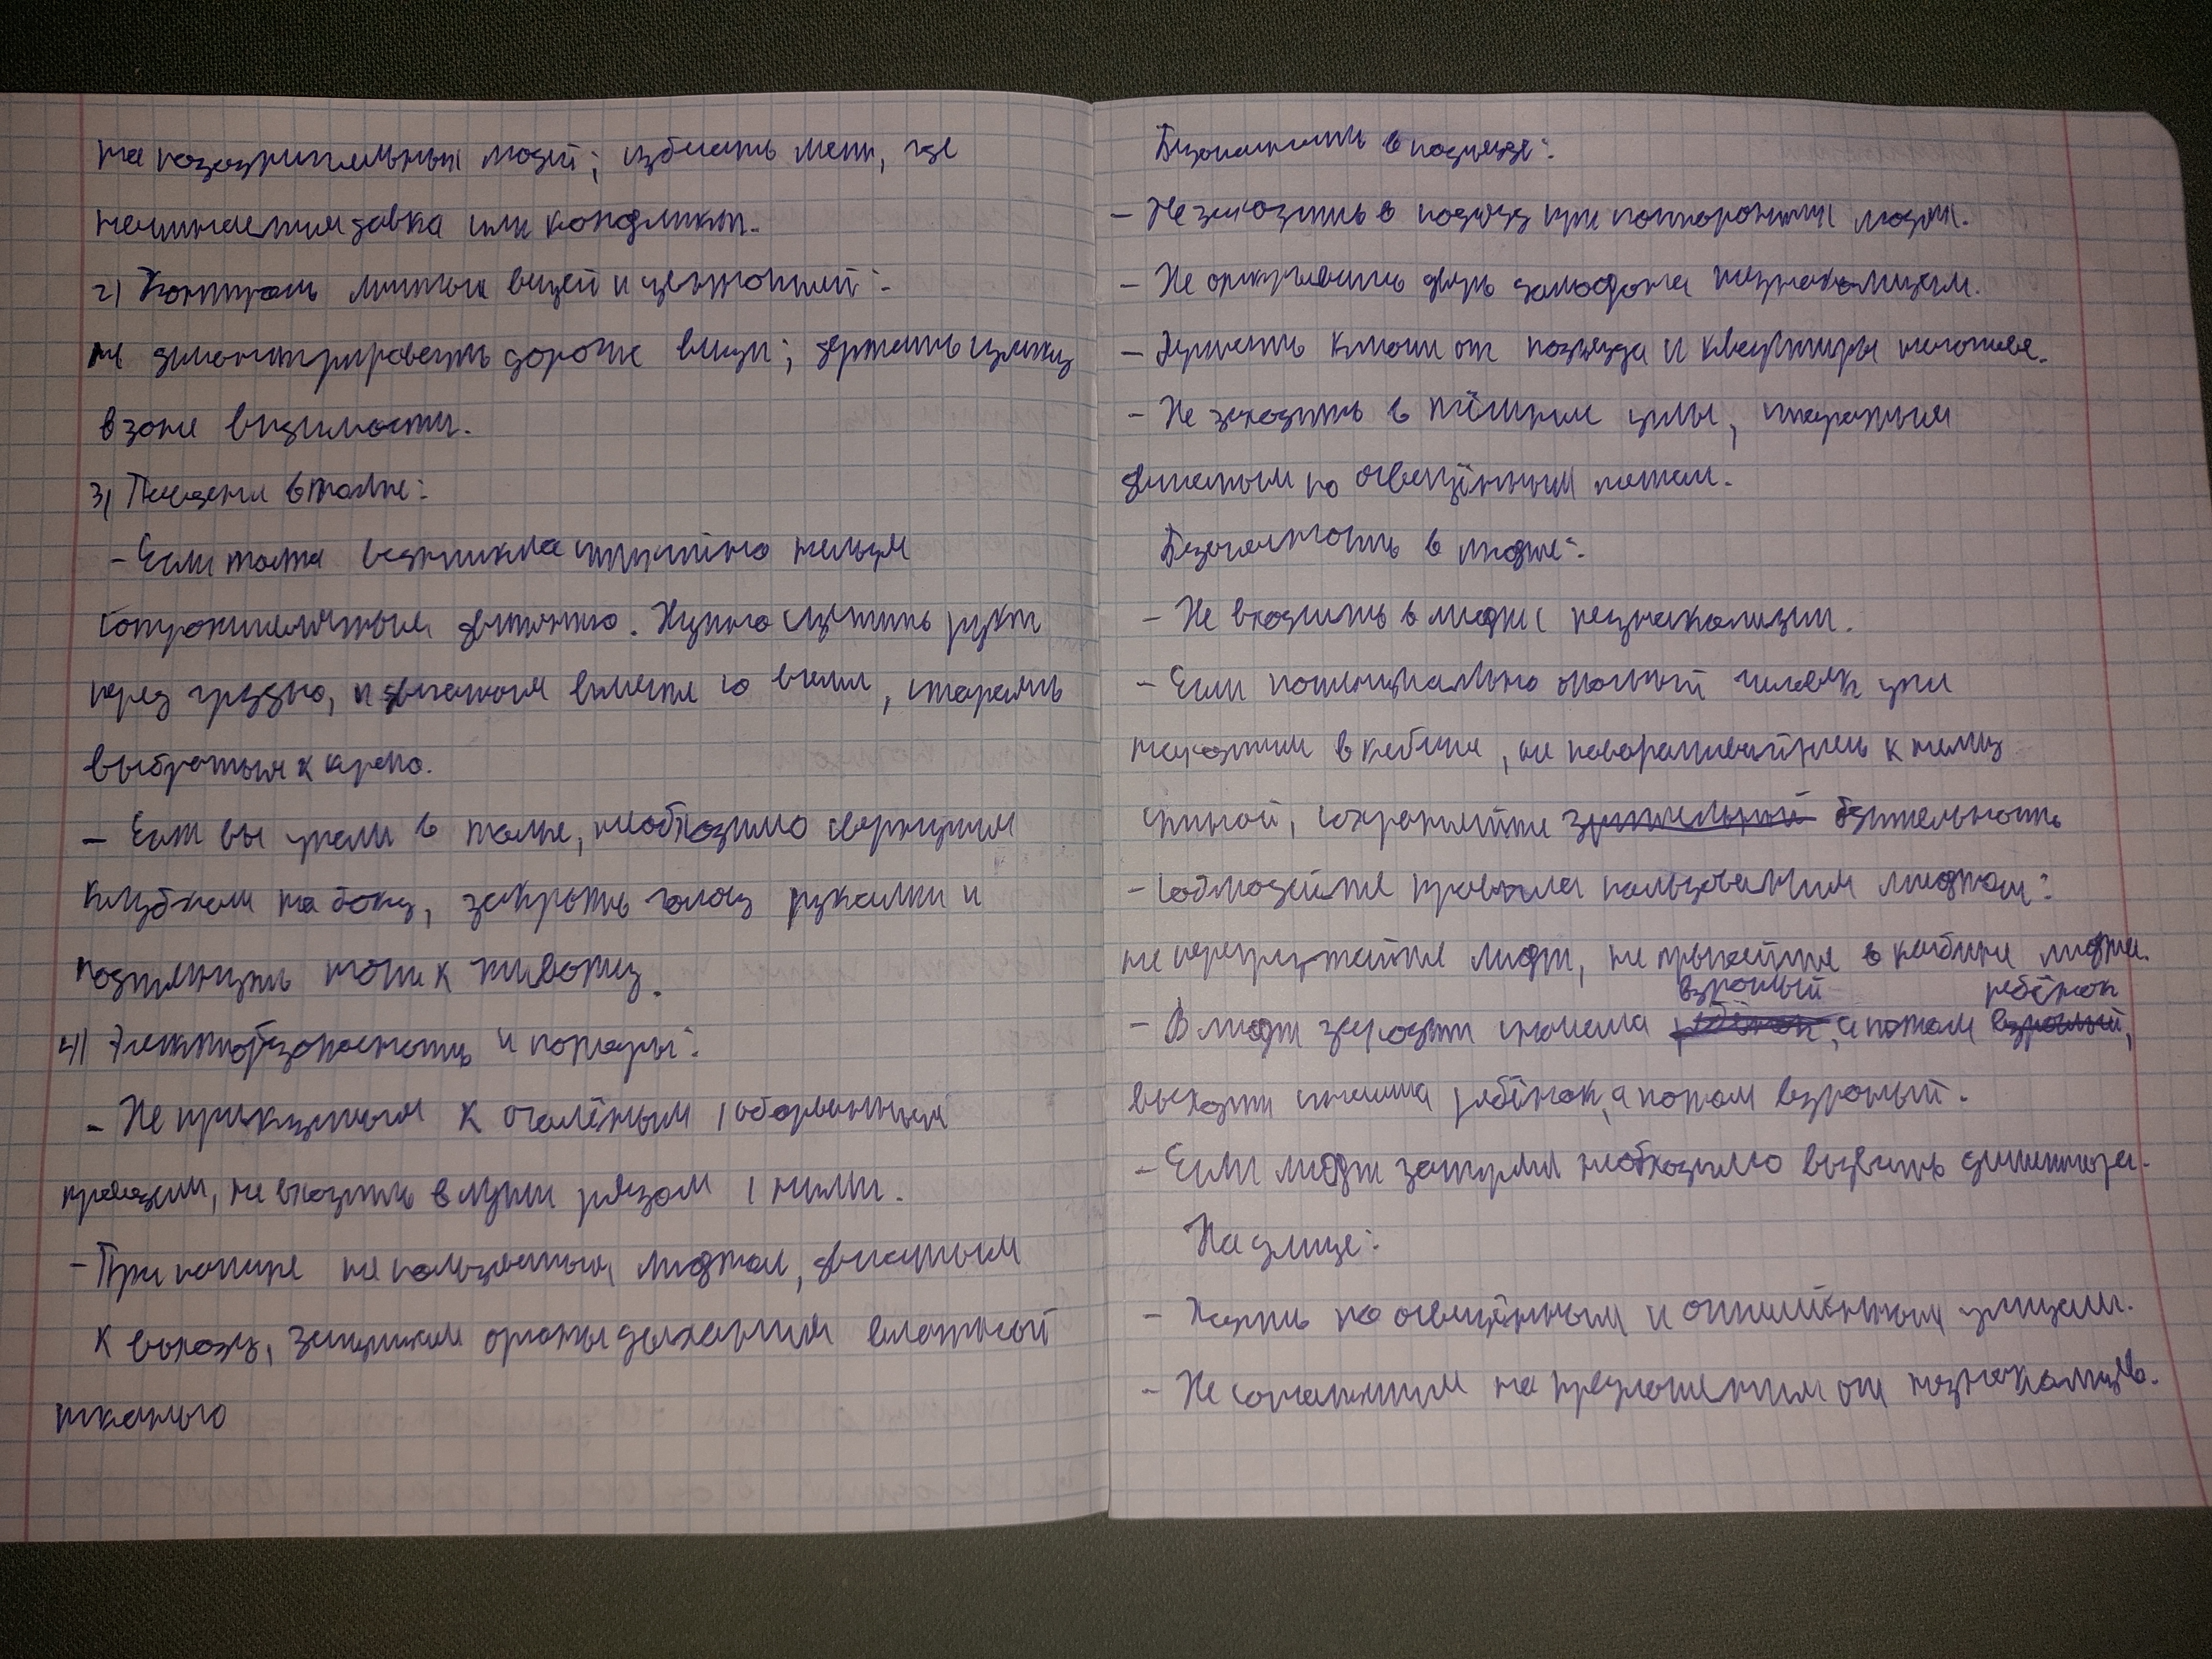 на подозрительных людей; избегать мест, где
начинается давка или конфликт.
2) Контроль личных вещей и ценностей:
не демонстрировать дорогие вещи; держать сумку
в зоне видимости.
3) Падение в толпе:
- Если толпа возникла нельзя
сопротивляться движению. Нужно сцепить руки
перед грудью, и двигаться вместе со всеми, стараясь
выбраться к краю.
- Если вы упали в толпе, необходимо свернуться
клубком на боку, закрыть голову руками и
подтянуть ноги к животу.
4) Электробезопасность и пожары:
- Не прикасаться к оголённым, оборванным
проводам, не входить в лужи рядом с ними.
- При пожаре не пользоваться лифтом, двигаться
к выходу, защищая органы дыхания влажной
тканью
Безопасность в подъезде:
- Не заходить в подъезд при посторонних людях.
- Не открывать дверь домофона незнакомцам.
- Держать ключи от подъезда и квартиры наготове.
- Не заходить в тёмные углы, стараться
двигаться по освещённым местам.
Безопасность в лифте:
- Не входить в лифт с незнакомцами.
- Если потенциально опасный человек уже
находится в кабине, не поворачивайтесь к нему
спиной, сохраняйте зрительный бдительность
- Соблюдайте правила пользования лифтом:
не перегружайте лифт, не прыгайте в кабине лифта.
взрослый ребёнок
- В лифт заходит сначала ребёнок, а потом взрослый,
выходит сначала ребёнок, а потом взрослый.
- Если лифт застрял необходимо вызвать диспетчера.
На улице:
- Ходить по освещённым и улицам.
- Не соглашаться на предложения от незнакомцев.